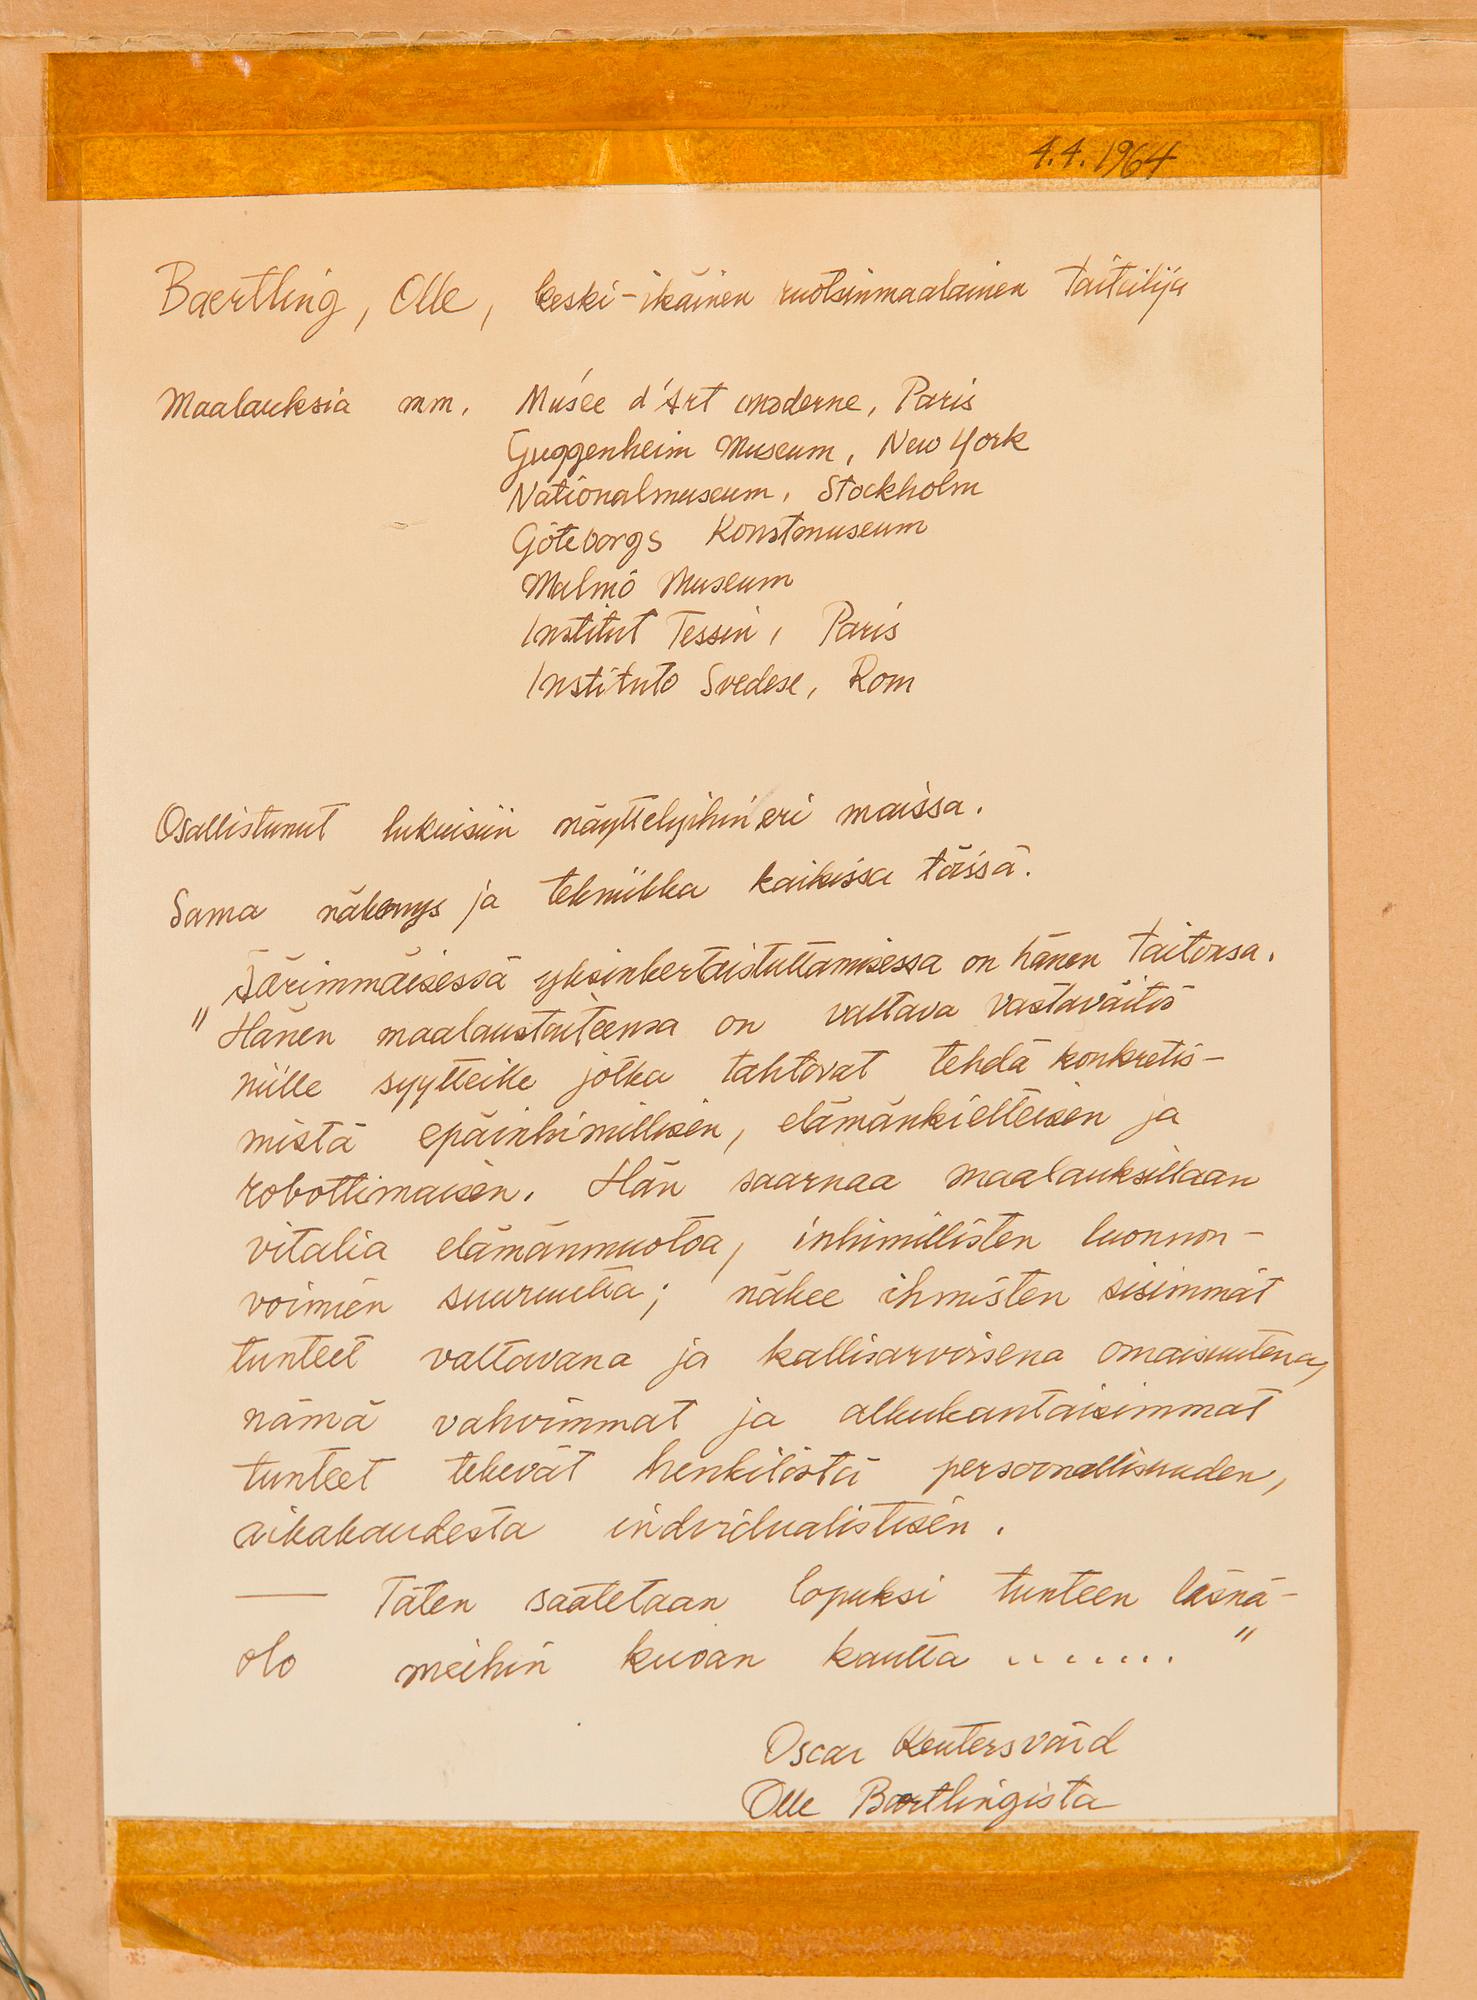 4.4.1964
Baertling, Olle, keski-ikäinen ruotsinmaalainen taiteilija
Maalauksia mm. Musée d'Art moderne, Paris
Guggenheim Museum, New York
Nationalmuseum, Stockholm
Göteborgs Konstmuseum
Malmö Museum
Institut Tessin, Paris
Instituto Svedese, Rom
Osallistunut lukuisiin näyttelyihin eri maissa.
Sama näkemys ja tekniikka kaikissa töissä.
Äärimmäisessä yksinkertaistuttamisessa on hänen taitonsa.
"Hänen maalaustaiteensa on valtava vastaväitös
niille syytteille jotka tahtovat tehdä konkretis-
mistä epäinhimillisen, elämänkielteisen ja
robottimaisen. Hän saarnaa maalauksillaan
vitalia elämänmuotoa, inhimillisten luonnon-
voimien suuruutta; näkee ihmisten sisimmät
tunteet valtavana ja kallisarvoisena omaisuutena,
nämä vahvimmat ja alkukantaisimmat
tunteet tekevät henkilöstä persoonallisuuden,
aikakaudesta individualistisen.
— Täten säätetaan lopuksi tunteen läsnä-
olo meihin kuvan kautta ........"
Oscar Reutersvärd
Olle Baertlingista